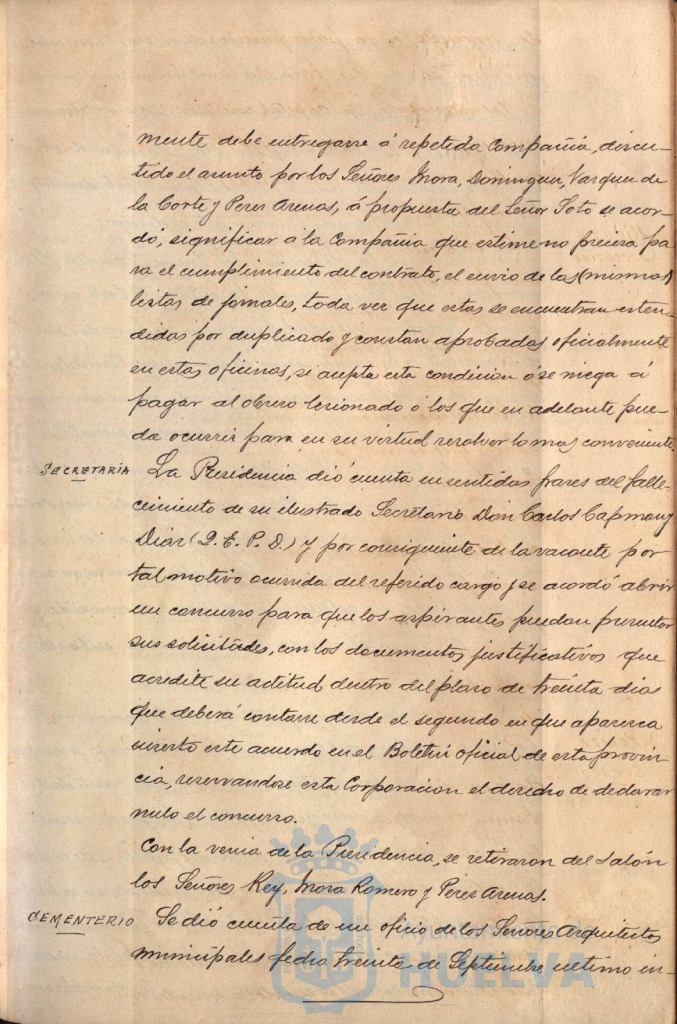 mente debe entregarse á repetida Compañia, discu-
tido el asunto por los Señores Mora, Dominguez, Vazquez de
la Corte y Perez Arenas, á propuesta del Señor Soto se acor-
dó, significar á la Compañia que estime no precisa pa
ra el cumplimiento del contrato, el envio de las (mismas)
listas de jornales, toda vez que estas se encuentran esten-
didas por duplicado y constan aprobadas oficialmente
en estas oficinas, si acepta esta condicion ó se niega á
pagar al obrero lesionado ó los que en adelante pue-
da ocurrir para en su virtud resolver lo mas conveniente.
SECRETARIA La Presidencia dió cuenta en sentidas frases del falle-
cimiento de su ilustrado Secretario Don Carlos Capmany
Diaz (Q. E. P. D.) y por consiguiente de la vacante por
tal motivo ocurrida del referido cargo y se acordó abrir
un concurso para que los aspirantes puedan presentar
sus solicitudes, con los documentos justificativos que
acredite su actitud dentro del plazo de treinta dias
que deberá contarse desde el segundo en que aparezca
inserto este acuerdo en el Boletin oficial de esta provin-
cia, reservandose esta Corporacion el derecho de declarar
nulo el concurso.
Con la venia de la Presidencia, se retiraron del Salón
los Señores Rey, Mora Romero y Perez Arenas.
CEMENTERIO Se dió cuenta de un oficio de los Señores Arquitectos
municipales fecha treinta de Septiembre ultimo in-
HUELVA